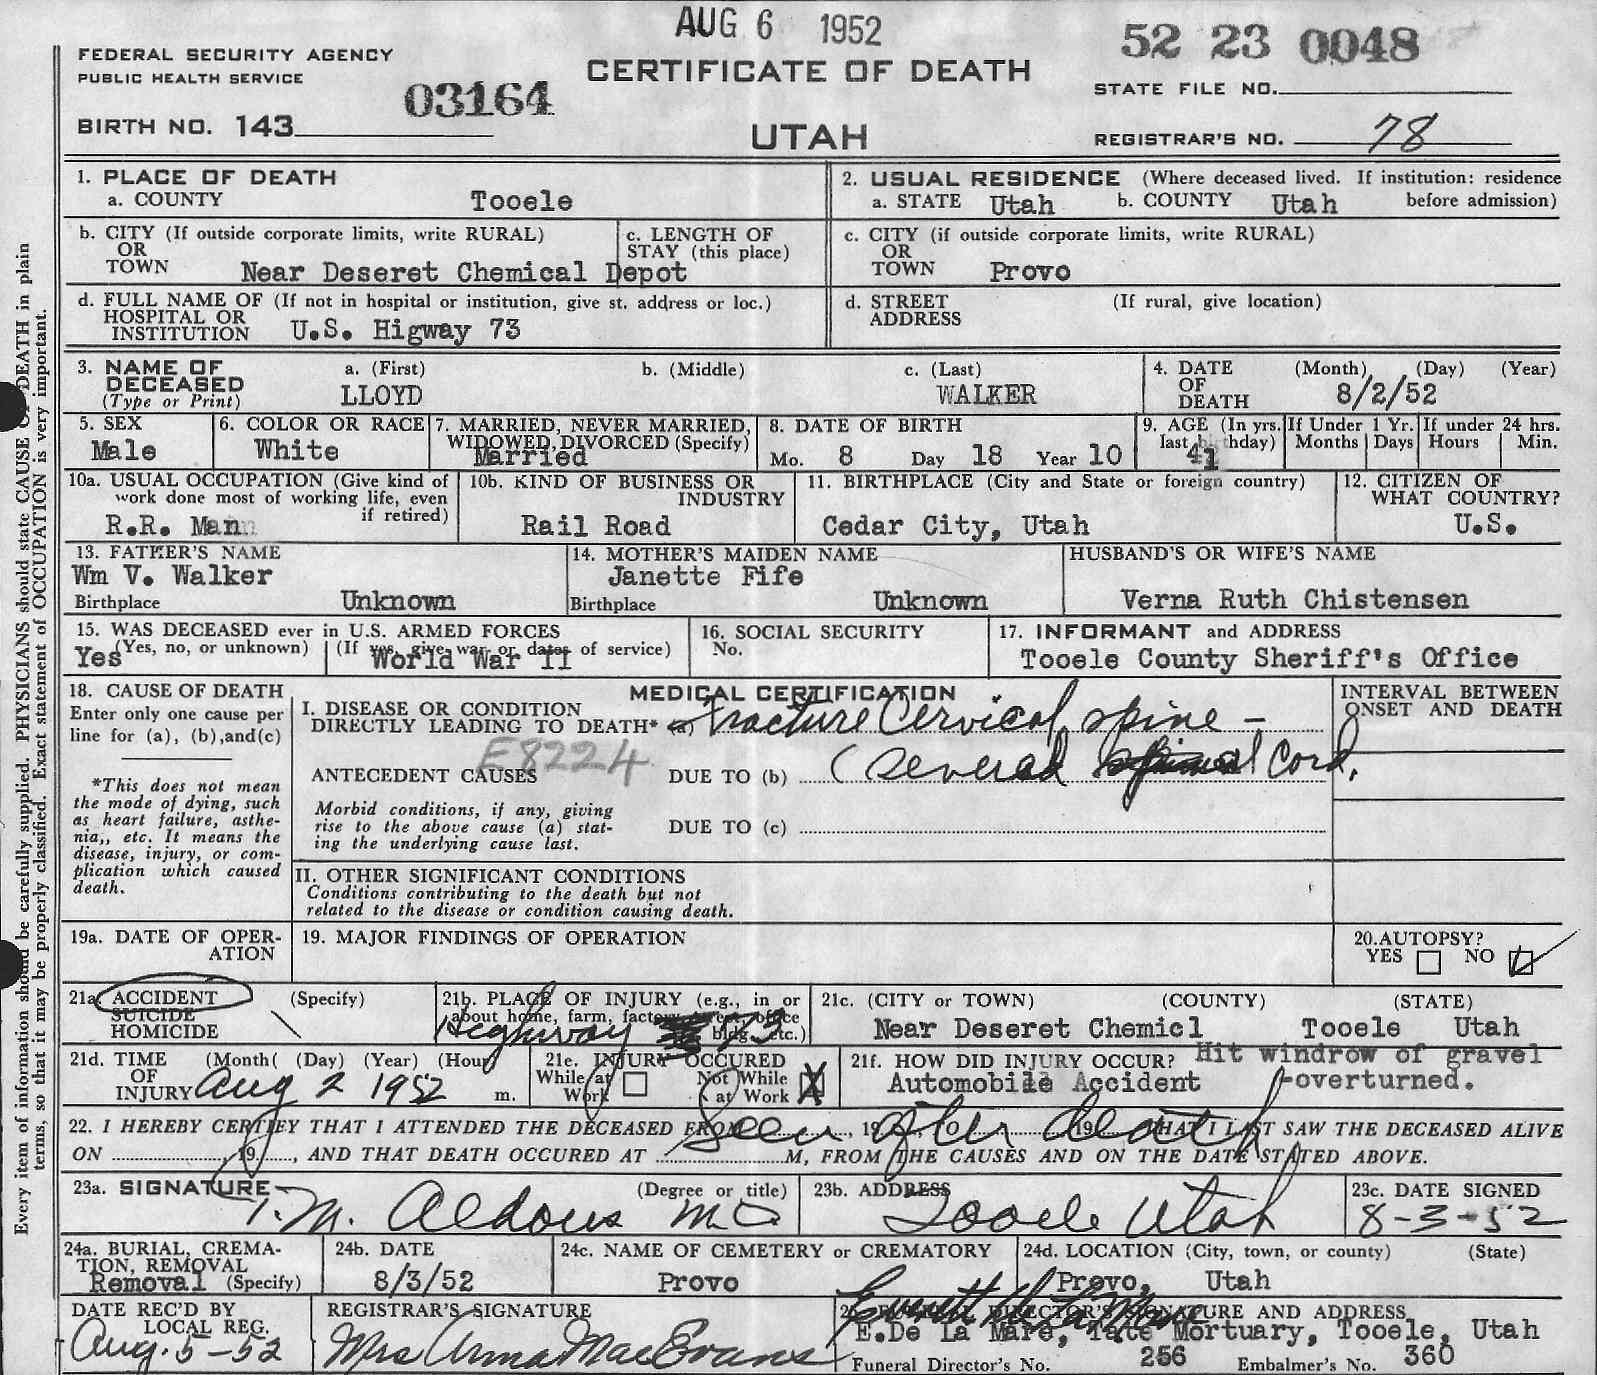 AUG 6 1952
52 23 0048
FEDERAL SECURITY AGENCY
PUBLIC HEALTH SERVICE
CERTIFICATE OF DEATH
STATE FILE NO.
03164
BIRTH NO. 143
UTAH
REGISTRAR'S NO. 78
1. PLACE OF DEATH
a. COUNTY Tooele
2. USUAL RESIDENCE (Where deceased lived. If institution: residence before admission)
a. STATE Utah b. COUNTY Utah
b. CITY (If outside corporate limits, write RURAL)
OR
TOWN Near Deseret Chemical Depot
c. LENGTH OF
STAY (this place)
c. CITY (if outside corporate limits, write RURAL)
OR
TOWN Provo
d. FULL NAME OF (If not in hospital or institution, give st. address or loc.)
HOSPITAL OR
INSTITUTION U.S. Higway 73
d. STREET (If rural, give location)
ADDRESS
3. NAME OF
DECEASED
(Type or Print)
a. (First) b. (Middle) c. (Last)
LLOYD WALKER
4. DATE (Month) (Day) (Year)
OF
DEATH 8/2/52
5. SEX
Male
6. COLOR OR RACE
White
7. MARRIED, NEVER MARRIED,
WIDOWED, DIVORCED (Specify)
Married
8. DATE OF BIRTH
Mo. 8 Day 18 Year 10
9. AGE (In yrs. last birthday)
41
If Under 1 Yr.
Months Days
If under 24 hrs.
Hours Min.
10a. USUAL OCCUPATION (Give kind of
work done most of working life, even
if retired)
R.R. Man
10b. KIND OF BUSINESS OR
INDUSTRY
Rail Road
11. BIRTHPLACE (City and State or foreign country)
Cedar City, Utah
12. CITIZEN OF
WHAT COUNTRY?
U.S.
13. FATHER'S NAME
Wm V. Walker
Birthplace Unknown
14. MOTHER'S MAIDEN NAME
Janette Fife
Birthplace Unknown
HUSBAND'S OR WIFE'S NAME
Verna Ruth Chistensen
15. WAS DECEASED ever in U.S. ARMED FORCES
(Yes, no, or unknown) (If yes, give war or dates of service)
Yes World War II
16. SOCIAL SECURITY
No.
17. INFORMANT and ADDRESS
Tooele County Sheriff's Office
18. CAUSE OF DEATH
Enter only one cause per
line for (a), (b),and(c)
*This does not mean
the mode of dying, such
as heart failure, asthe-
nia,, etc. It means the
disease, injury, or com-
plication which caused
death.
MEDICAL CERTIFICATION
I. DISEASE OR CONDITION
DIRECTLY LEADING TO DEATH* (a) Fracture Cervical spine -
E8224
ANTECEDENT CAUSES DUE TO (b) (Severed spinal Cord.
Morbid conditions, if any, giving
rise to the above cause (a) stat-
ing the underlying cause last.
DUE TO (c)
II. OTHER SIGNIFICANT CONDITIONS
Conditions contributing to the death but not
related to the disease or condition causing death.
INTERVAL BETWEEN
ONSET AND DEATH
19a. DATE OF OPER-
ATION
19. MAJOR FINDINGS OF OPERATION
20.AUTOPSY?
YES NO
21a. ACCIDENT (Specify)
SUICIDE
HOMICIDE
21b. PLACE OF INJURY (e.g., in or
about home, farm, factory, street, office
bldg., etc.)
Highway 73
21c. (CITY or TOWN) (COUNTY) (STATE)
Near Deseret Chemicl Tooele Utah
21d. TIME (Month( (Day) (Year) (Hour)
OF
INJURY Aug 2 1952 m.
21e. INJURY OCCURED
While at Work
Not While at Work X
21f. HOW DID INJURY OCCUR? Hit windrow of gravel
Automobile Accident -overturned.
22. I HEREBY CERTIFY THAT I ATTENDED THE DECEASED FROM, 19, TO 19 THAT I LAST SAW THE DECEASED ALIVE
seen after death
ON, 19, AND THAT DEATH OCCURED AT M, FROM THE CAUSES AND ON THE DATE STATED ABOVE.
23a. SIGNATURE (Degree or title)
T.M. Aldous MD
23b. ADDRESS
Tooele Utah
23c. DATE SIGNED
8-3-52
24a. BURIAL, CREMA-
TION, REMOVAL
Removal (Specify)
24b. DATE
8/3/52
24c. NAME OF CEMETERY or CREMATORY
Provo
24d. LOCATION (City, town, or county) (State)
Provo, Utah
DATE REC'D BY
LOCAL REG.
Aug. 5-52
REGISTRAR'S SIGNATURE
Mrs Anna MacEvans
25. FUNERAL DIRECTOR'S SIGNATURE AND ADDRESS
E.De La Mare, Tate Mortuary, Tooele, Utah
Funeral Director's No. 256 Embalmer's No. 360
Every item of information should be carefully supplied. PHYSICIANS should state CAUSE OF DEATH in plain
terms, so that it may be properly classified. Exact statement of OCCUPATION is very important.